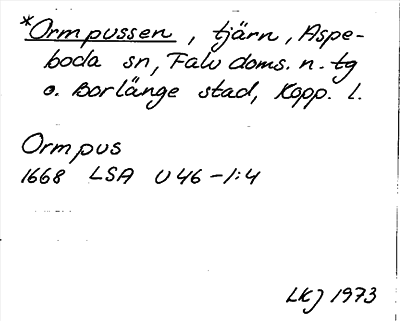 *Ormpussen, tjärn, Aspe-
boda sn, Falu doms. n. tg
o. Borlänge stad, Kopp. l.
Ormpus
1668 LSA U 46 - 1:4
LKJ 1973